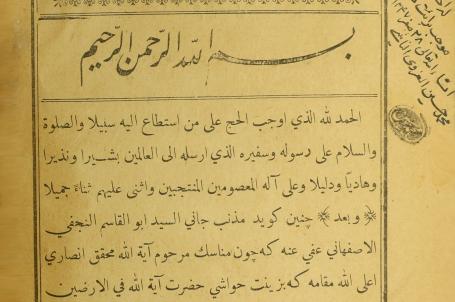 بسم الله الرّحمن الرّحيم
الحمد لله الذي اوجب الحج على من استطاع اليه سبيلا والصلوة
والسلام على رسوله وسفيره الذي ارسله الى العالمين بشيرا ونذيرا
وهاديا ودليلا وعلى آله المعصومين المنتجبين واثنى عليهم ثناءً جميلا
﴿ وبعد ﴾ چنين كويد مذنب جاني السيد ابو القاسم النجفي
الاصفهاني عفي عنه كه چون مناسك مرحوم آية الله محقق انصاري
اعلى الله مقامه كه بزينت حواشي حضرت آية الله في الارضين